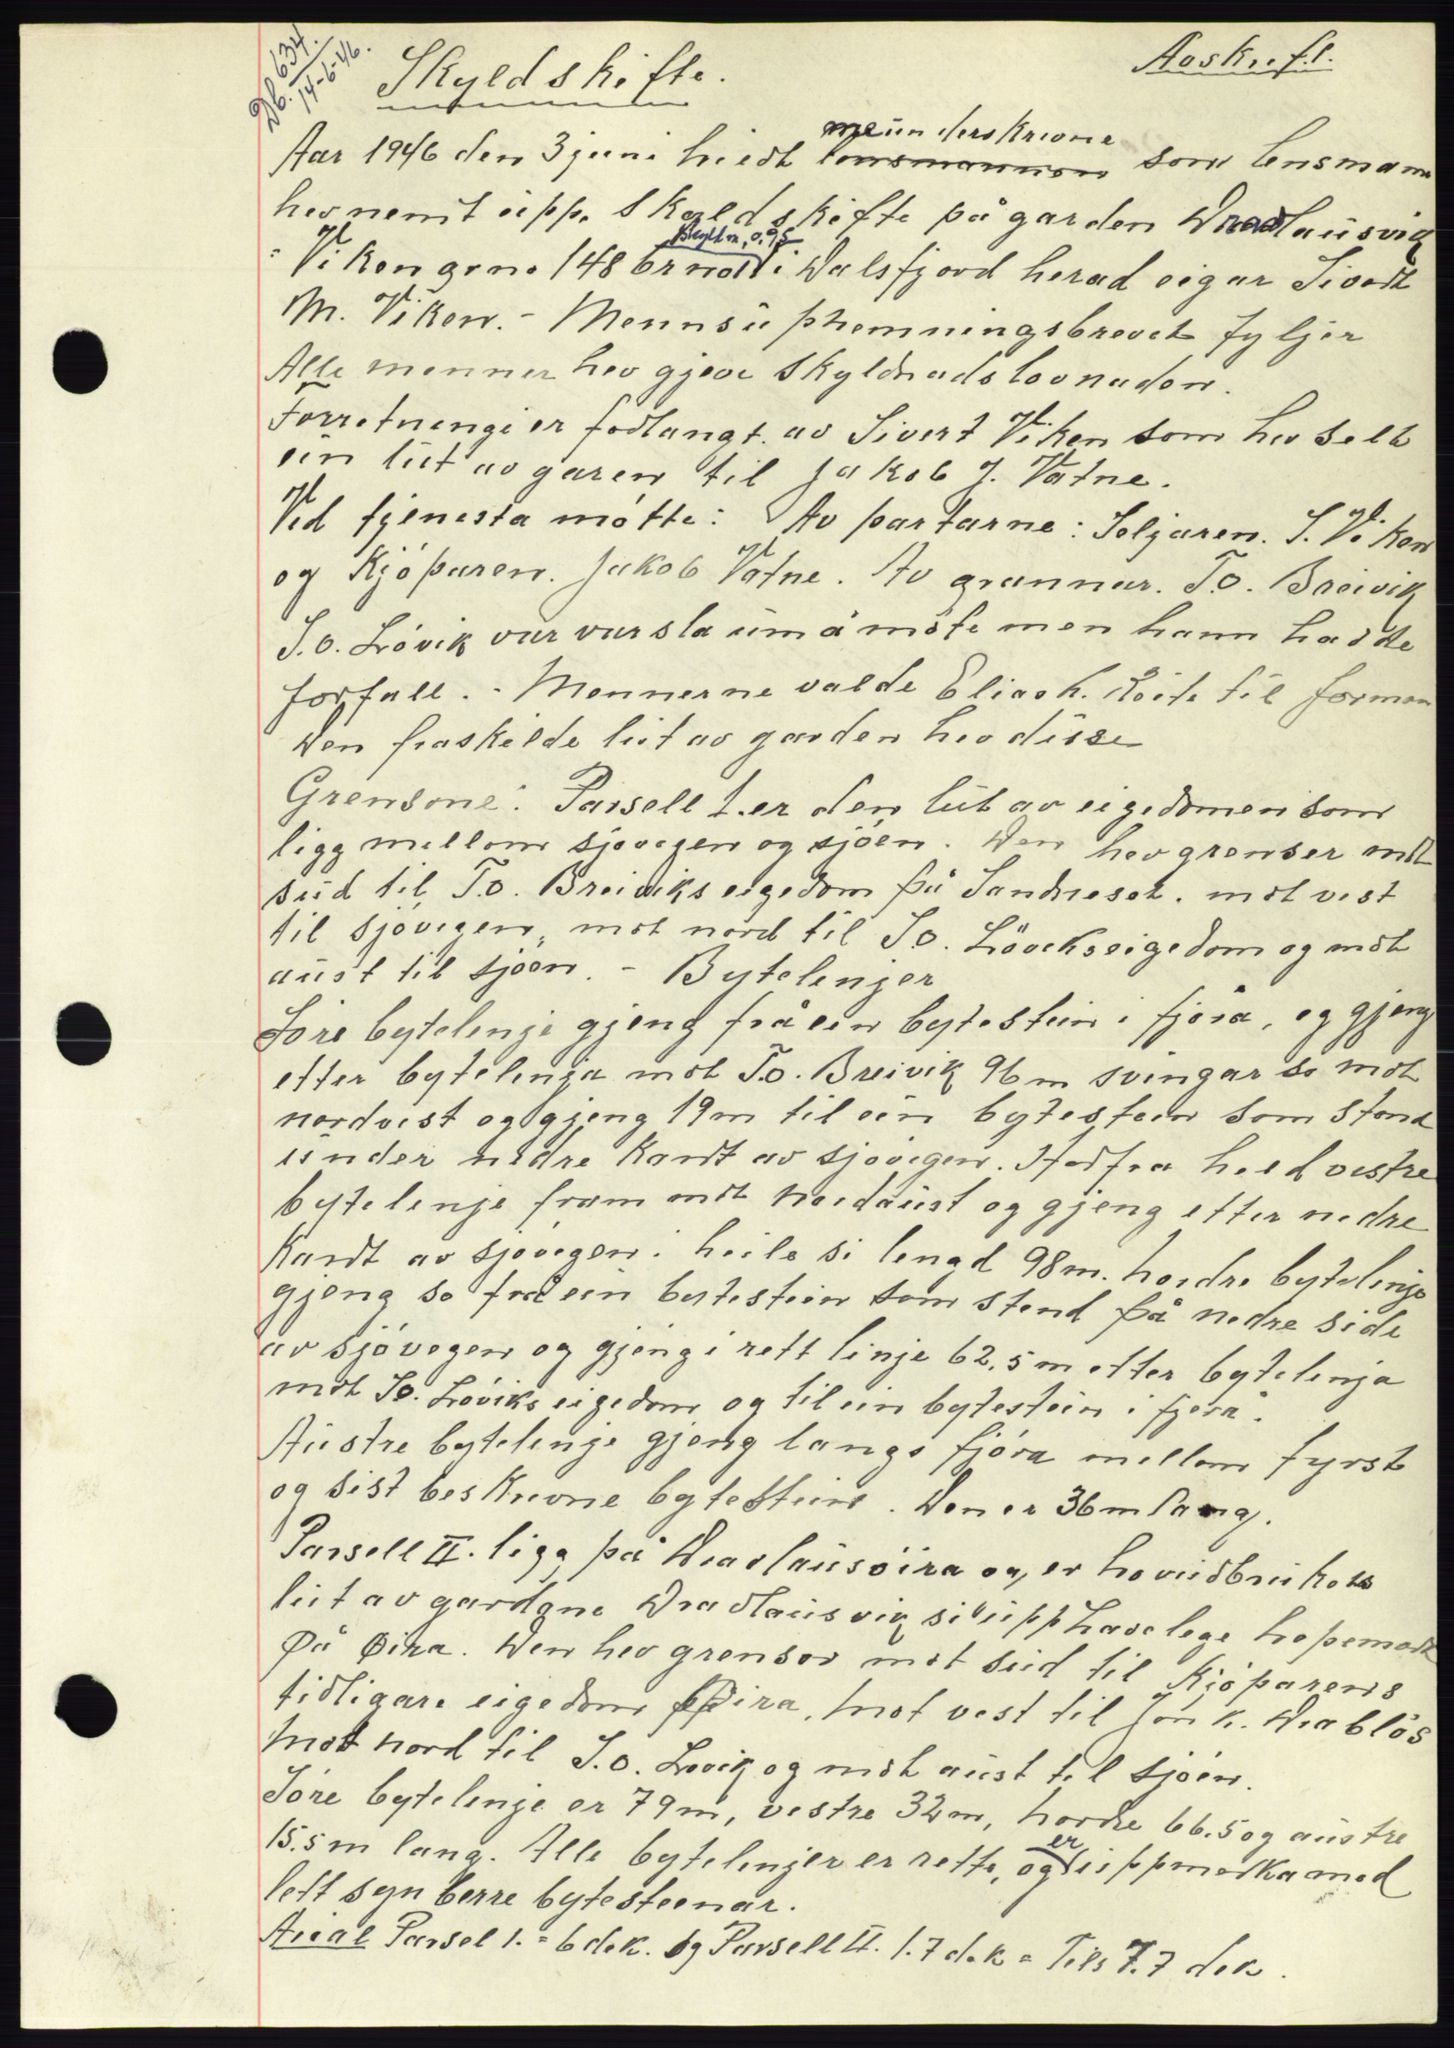 Db. 634.
14-6-46.
Avskrift.
Skyldskifte.
meunderskrivne
Aar 1946 den 3 juni heldt lensmannen som lensmann
hev nemt upp. Skyldskifte på garden Dravlausvik
Skyld m. 0,95
: Viken grno 148 brno 1 i Dalsfjord herad eigar Sivert
M. Viken. - Mennsuphemningsbrevet fyljer
Alle menner hev gjeve skyldnadslovnaden.
Forretningi er fodlangt. av Sivert Viken som hev selt
ein lut av garen til Jakob J. Vatne.
Ved tjenesta møtte: Av partarne: Seljaren. S. Viken
og Kjøparen. Jakob Vatne. Av grannar. T.O. Breivik
S.O. Løvik var varsla um å møte men hann hadde
forfall. - Mennerne valde Elias h. Koite til forman
Den fraskilde lut av garden hev disse
Grensone: Parsell 1. er den lut av eigedomen som
ligg mellom sjøvegen og sjøen. Den hev grenser mot
sud til T.O. Breiviks eigedom på Sandneset. mot vest
til sjøvegen, mot nord til S.O. Løviks eigedom og mot
aust til sjøen. - Bytelenjer
Søre bytelenje gjeng frå ein bytestein i fjøra, og gjeng
etter bytelenja mot T.O. Breivik 96 m svingar so mot
nordvest og gjeng 19 m til ein bytestein som stend
under nedre kant av sjøvegen. Hedfra held vestre
bytelenje fram mot nordaust og gjeng etter nedre
Kant av sjøvegen i heile si lengd 98 m. Nordre bytelenje
gjeng so frå ein bytestein som stend på nedre side
av sjøvegen og gjeng i rett linje 62.5 m etter bytelenja
mot S.O. Løviks eigedom og til ein bytestein i fjera.
Austre bytelenje gjeng langs fjøra mellom fyrst
og sist beskrivne bytestein. Den er 36 m lang.
Parsell II. ligg på Dravlausøira og er hovudbrukets
lut av gardane Dravlausvik si upphavelege hopemark
På Øira. Den hev grenser mot sud til Kjøparens
tidligare eigedom Øira, mot vest til Jon K. Drabløs
Mot nord til S.O. Løvik og mot aust til sjøen.
Søre bytelenje er 79 m, vestre 32 m, nordre 66.5 og austre
er
15.5 m lang. Alle bytelenjer er rette, og uppmerka med
lett synberre bytesteenar.
Areal Parsel 1. = 6 dek. og Parsell II. 1.7 dek = Tils 7.7 dek.